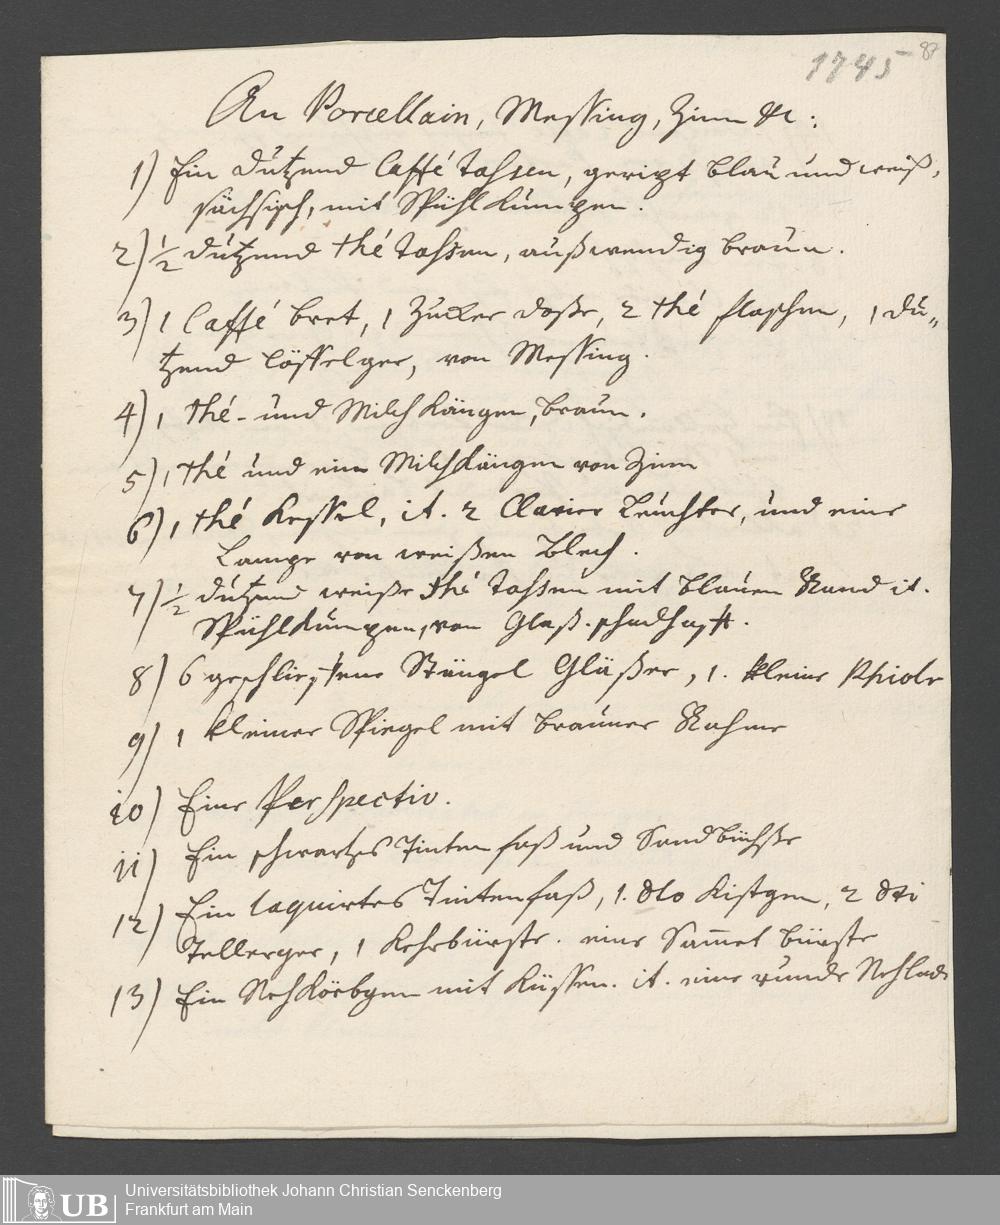 1745
87
An Porcellain, Messing, Zinn &c:
1) Ein Dutzend Caffé Tassen, geript blau und weiß,
sächsisch, mit Spühl Kumpen.
2) ½ dutzend thé Tassen, außwendig braun.
3) 1 Caffé bret, 1 Zucker doße, 2 thé flaschen, 1 du„
tzend Löffelger, von Messing.
4) 1 thé- und Milch Kängen, braun.
5) 1 thé und ein Milch Kängen von Zinn
6) 1 thé Kessel, it. 2 Clavier Leuchter, und eine
Lampe von weißen Blech.
7) ½ dutzend weiße thé Tassen mit blauen Rand it.
Spühl Kumpen, von Glaß. schadhafft.
8) 6 geschlieffene Stängel Gläßer, 1. kleine Phiole
9) 1 kleiner Spiegel mit brauner Rahme
10) Eine Perspectiv.
11) Ein schwartzes Tinten faß und Sandbüchße
12) Ein laquirtes Tintenfaß, 1. dto Kistgen, 2 dti
Tellerger, 1 Kehrbürste. eine Sam̅et bürste
13) Ein Nehkörbgen mit Küssen. it. eine runde Nehlade
UB
Universitätsbibliothek Johann Christian Senckenberg
Frankfurt am Main